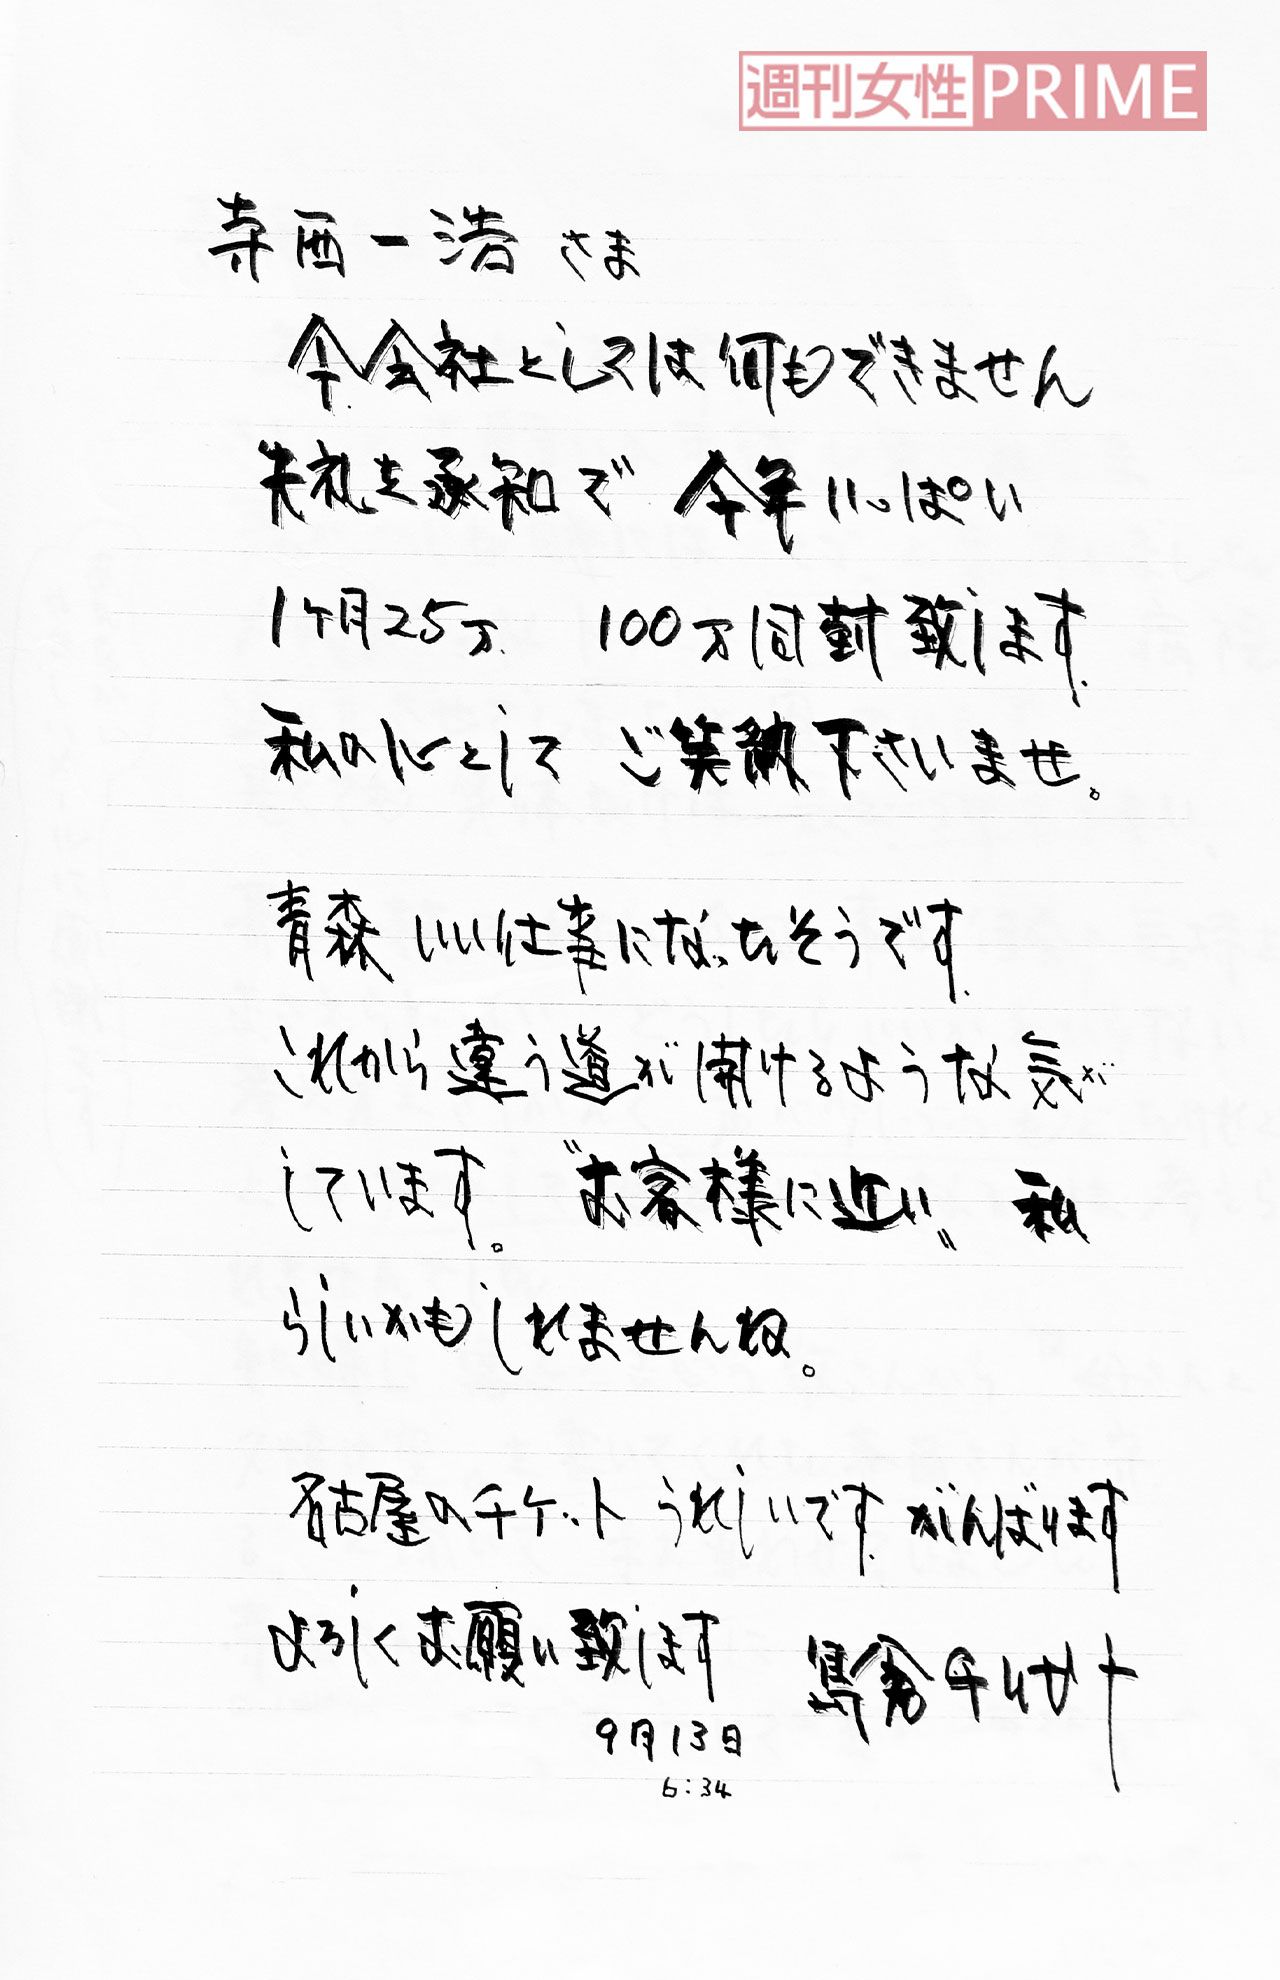 週刊女性PRIME
寺西一浩 さま
今会社としては何もできません
失礼を承知で 今年いっぱい
1ヶ月25万 100万同封致します
私の心として ご笑納下さいませ。
青森 いい仕事になったそうです
これから違う道が開けるような気が
しています。〝お客様に近い〟 私
らしいかもしれませんね。
名古屋のチケット うれしいです がんばります
よろしくお願い致します 島倉千代子
9月13日
6:34